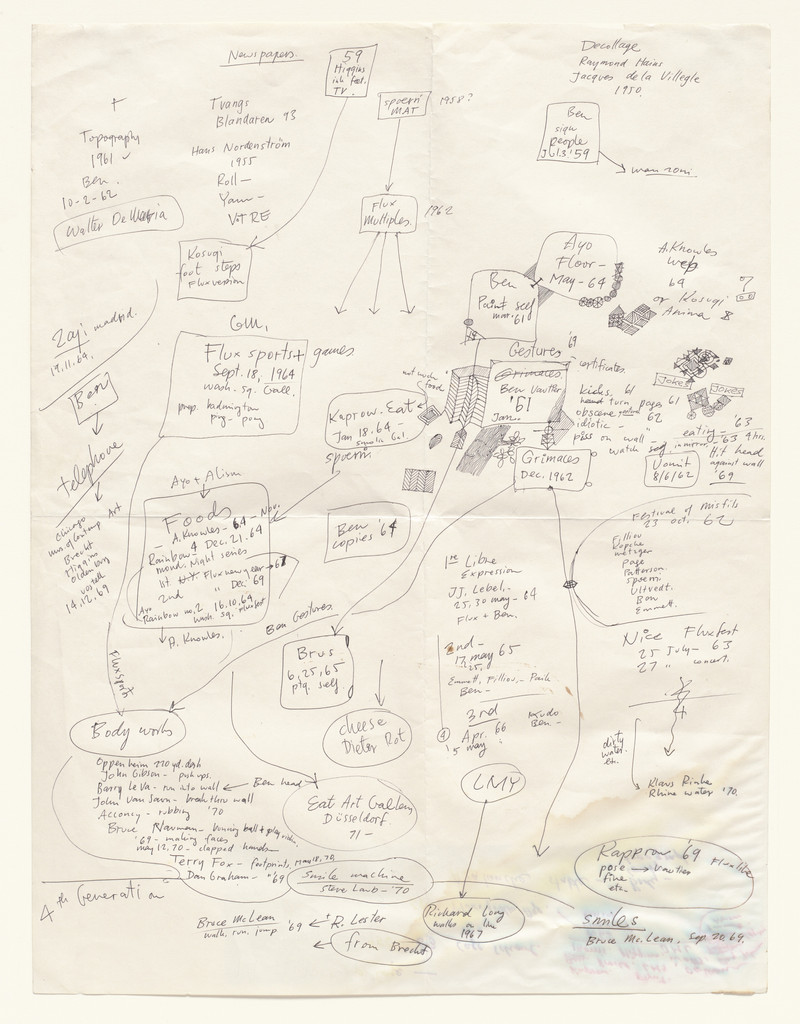 Newspapers.
59
Higgins
ink feet.
TV.
Decollage
Raymond Hains
Jacques de la Villegle
1950.
spoerri
MAT
1958?
Topography
1961
Ben.
10-2-62
Walter De Maria
Tvangs
Blandaren 93
Hans Nordenström
1955
Roll—
Yam—
VITRE
Ben
sign
people
manzoni.
Flux
Multiples.
1962
Kosugi
foot steps
Flux version
Ayo
Floor—
May-64
A. Knowles
web
69
or Kosugi
Anima 8
?
Ben
Paint self
mar. 61
Zaj madrid.
19.11.69.
GM,
Flux sports + games
Sept. 18, 1964
wash. sq. Gall.
prep. badminton
ping-pong
Gestures '69
certificates.
Grimaces
Ben Vautier
'61
Jan.
Jokes
Jokes
not much
food
Kaprow. Eat
Jan 18. 64—
spoerri
kicks, 61
hand turn pages 61
obscene 62
idiotic — "
piss on wall —
watch self in mirror — '63 4 hrs.
eating — '63
Hit head
against wall
'69
Vomit
8/6/62
Ben
telephone
Chicago
mus. of Contemp Art
Brecht
Higgins
Oldenburg
vostell
14.12.69
Grimaces
Dec. 1962
Ayo, Alison
Foods
A. Knowles — 64 — Nov.
Rainbow — 4 Dec. 21. 64
mond. Night series
1st Flux new year → 67
2nd " Dec '69
Ayo
Rainbow no. 2 16.10.69
A. Knowles.
Ben '64
copies
Festival of misfits
23 oct. 62
Filliou
Kopcke
metzger
page
Patterson.
spoerri
Ultvedt.
Ben
Emmett.
1re Libre
Expression
JJ. Lebel.—
25, 30 may — 64
Flux + Ben.
Ben Gestures.
Nice Fluxfest
25 July — 63
27 " concert.
2nd—
17, may 65
25,
Emmett, Filliou, —
Ben —
3rd
Apr. 66
5 may
Kudo
Ben —
4
Brus
6, 25, 65
ptg. self
Flux sports
Body works
cheese
Dieter Rot
dirty
water.
etc.
Klaus Rinke
Rhine water '70.
Oppenheim 220 yd. dash
John Gibson — push ups.
Barry Le Va — run into wall ← Ben head
John Van Saun — break thru wall
Acconcy — rubbing '70
Bruce Nauman —
'69 — making faces
may 12, 70 — clapped hands—
Terry Fox — footprints, May 18, 70
Dan Graham — '69
Eat Art Gallery
Düsseldorf
71 —
LMY
smile machine
Steve Laub — '70
Rapprow '69 Fluxlibe
pose → Vautier
fine
etc.
4th Generation
Bruce McLean
walk, run, jump '69
R. Lester
from Brecht
Richard Long
walks on
1967
smiles
Bruce Mc. Lean, Sep 20, 69.